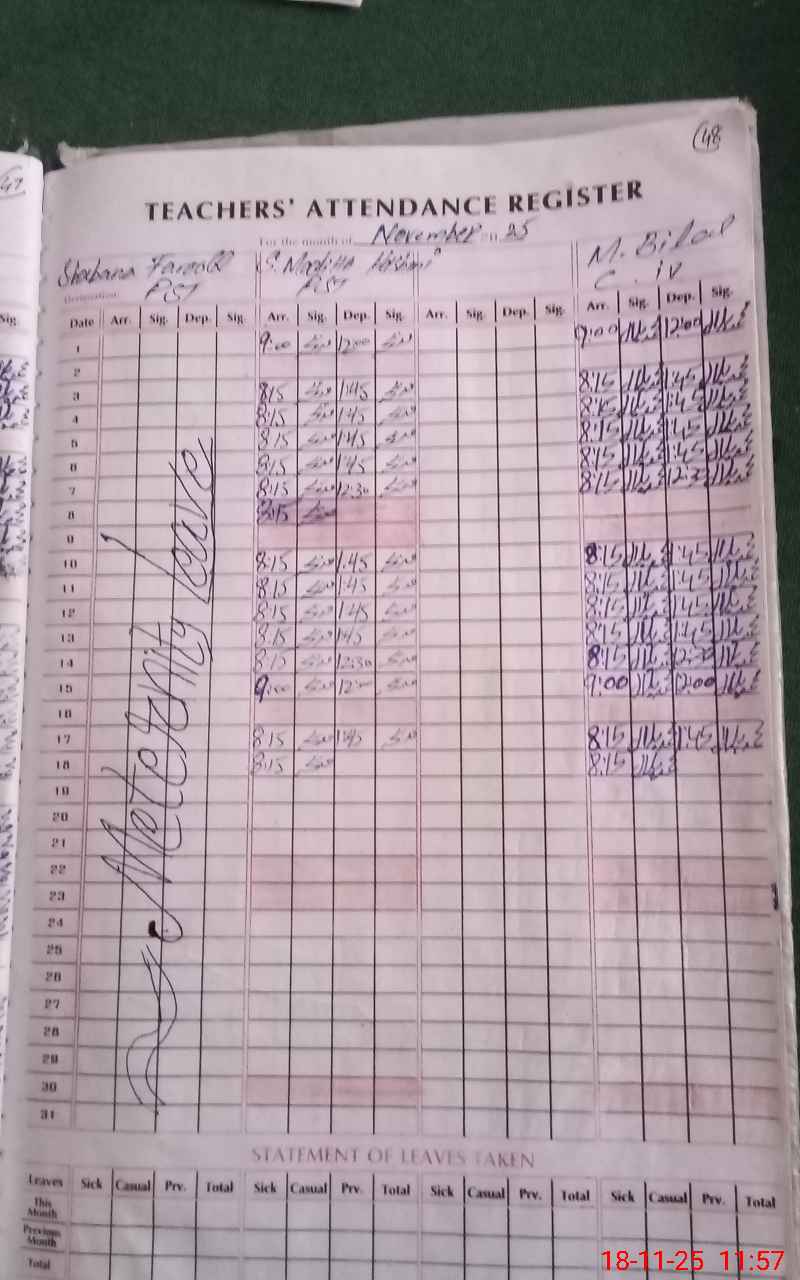 48
TEACHERS' ATTENDANCE REGISTER
For the month of November 25
Shabana Farooq S. M. Bilal
PST PST C. iv
Date Arr. Sig. Dep. Sig. Arr. Sig. Dep. Sig. Arr. Sig. Dep. Sig. Arr. Sig. Dep. Sig.
1 9:00 12:00 9:00 12:00
2
3 8:15 1:45 8:15 1:45
4 8:15 1:45 8:15 1:45
5 8:15 1:45 8:15 1:45
6 8:15 1:45 8:15 1:45
7 8:15 12:30 8:15 12:30
8 8:15
9
10 8:15 1:45 8:15 1:45
11 8:15 1:45 8:15 1:45
12 8:15 1:45 8:15 1:45
13 8:15 1:45 8:15 1:45
14 8:15 12:30 8:15 12:30
15 9:00 12:00 9:00 12:00
16
17 8:15 1:45 8:15 1:45
18 8:15 8:15
19
20
21
22
23
24
25
26
27
28
29
30
31
Meternity Leave
STATEMENT OF LEAVES TAKEN
Leaves Sick Casual Prv. Total Sick Casual Prv. Total Sick Casual Prv. Total Sick Casual Prv. Total
This Month
Previous Month
Total
18-11-25 11:57